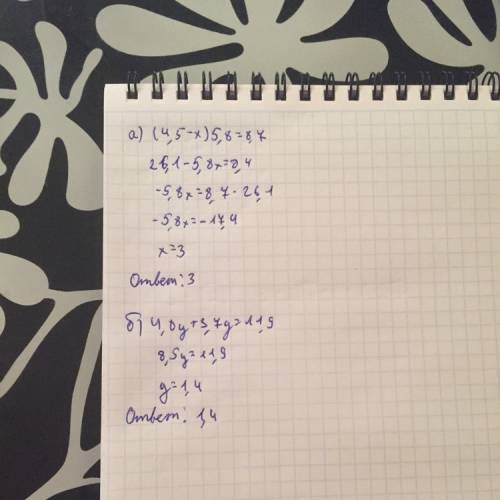 а) (4,5-х)5,8=8,7
26,1-5,8х=8,4
-5,8х=8,7-26,1
-5,8х=-17,4
х=3
Ответ: 3
б) 4,8у+3,7у=11,9
8,5у=11,9
у=1,4
Ответ: 1,4